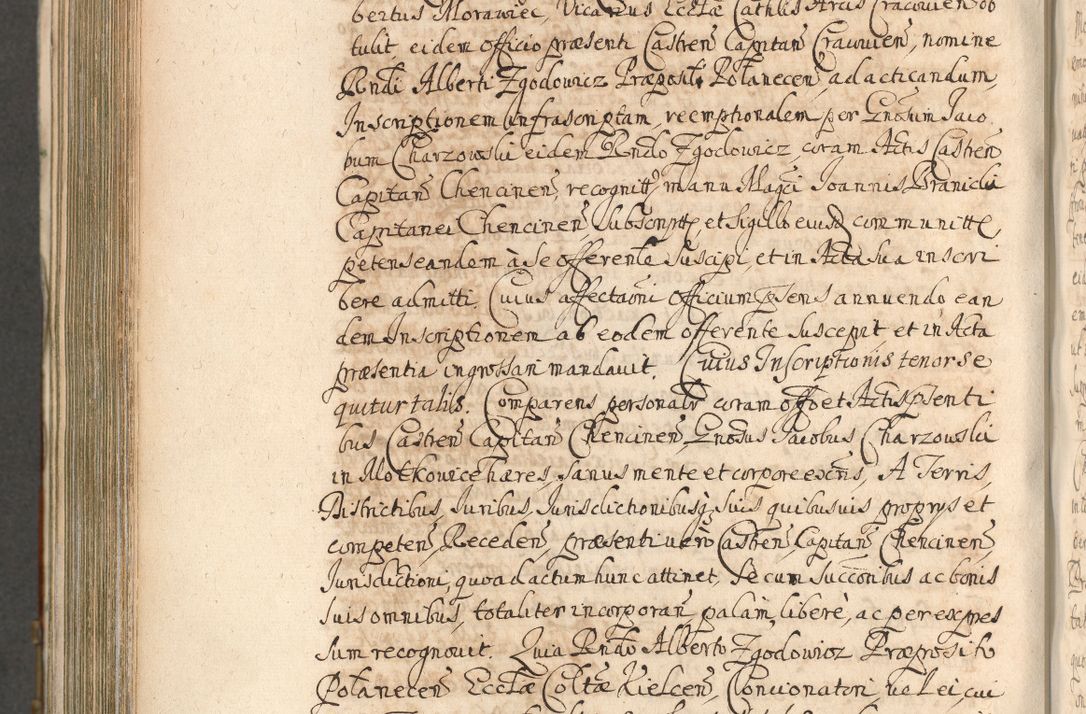 bertus Morawiec, Vicarius Ecclæ Cathlis Arcis Cracovien ob
tulit eidem officio præsenti Castren Capitan Cracovien, nomine
Rndi Alberti Zgodowicz Præpositi Połanecen, ad acticandum,
Inscriptionem infrascriptam, reemptionalem per Gnosum Iaco,
bum Charzowski eidem Rndo Zgodowicz, coram Actis Castren
Capitan Chencinen, recognitt, manu Magci Ioannis Branicki
Capitanei Chencinen subscriptt, et sigillo eiusd communitt,
petens eandem à se offerente suscipi, et in Acta sua inscri
bere admitti. Cuius affectaoni officium psens annuendo ean
dem Inscriptionem ab eodem offerente suscepit et in Acta
præsentia ingrossari mandavit. Cuius Inscriptionis tenor se
quitur talis. Comparens personalr coram offo et Actis psenti
bus Castren Capitan Chencinen, Gnosus Iacobus Charzowski
in Mołkowice hæres, sanus mente et corpore exens, A Terris,
Districtibus, Iuribus, Iurisdictionibusq suis quibusvis proprys et
competen Receden, præsenti vero Castren, Capitan Chencinen
Iurisdictioni, quo ad actum hunc attinet, se cum succoribus ac bonis
suis omnibus, totaliter incorporan, palam, libere, ac per expres
sum recognovit. Quia Rndo Alberto Zgodowicz Præposito
Połanecen Ecclæ Coltæ Kielcen, Concionatori, ve Lei, cui